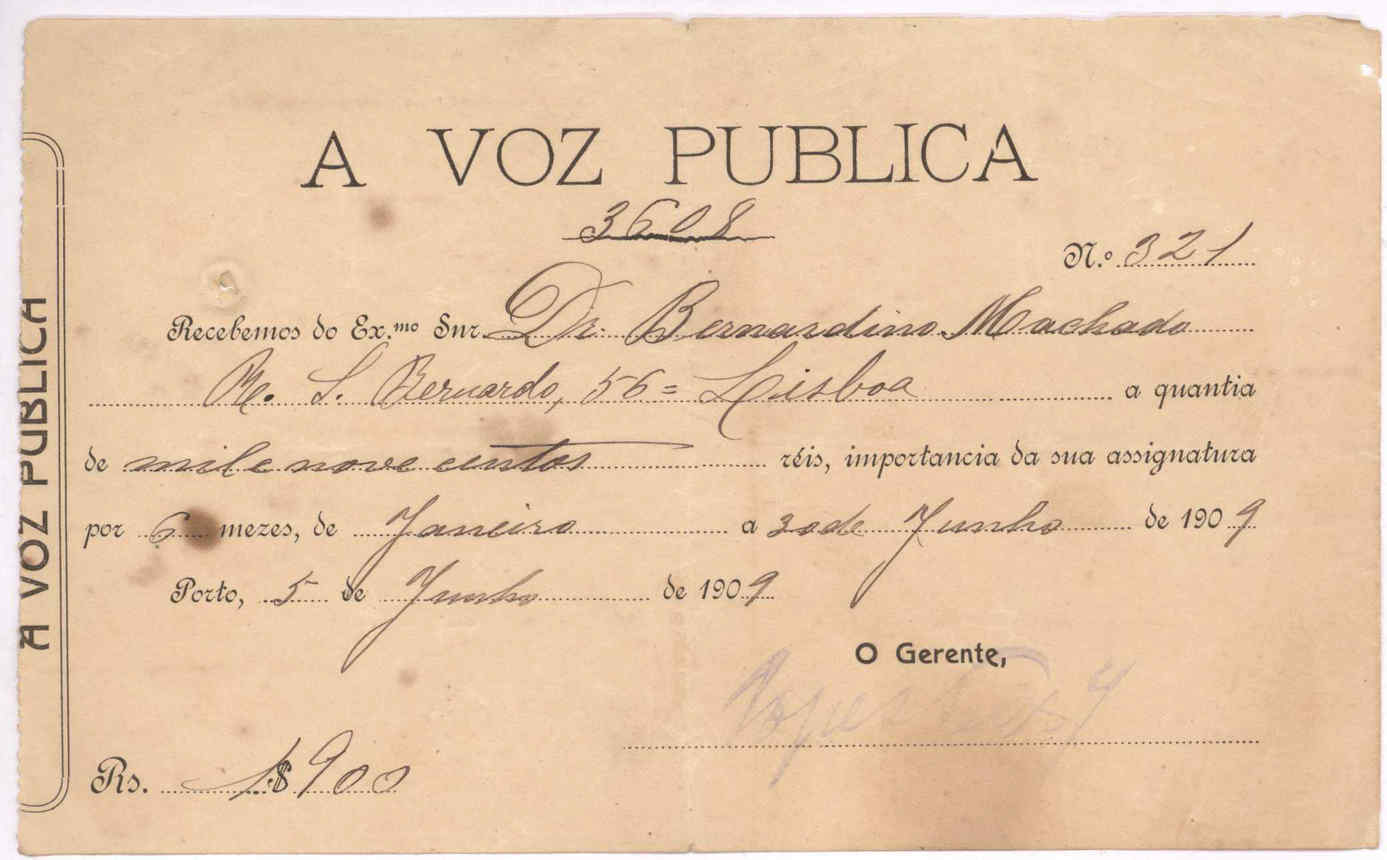 A VOZ PUBLICA
A VOZ PUBLICA
3608
N.º 321
Recebemos do Ex.mo Snr. Dr. Bernardino Machado
R. S. Bernardo, 56 = Lisboa a quantia
de mil e nove centos réis, importancia da sua assignatura
por 6 mezes, de Janeiro a 30 de Junho de 1909
Porto, 5 de Junho de 1909
O Gerente,
Rs. 1$900